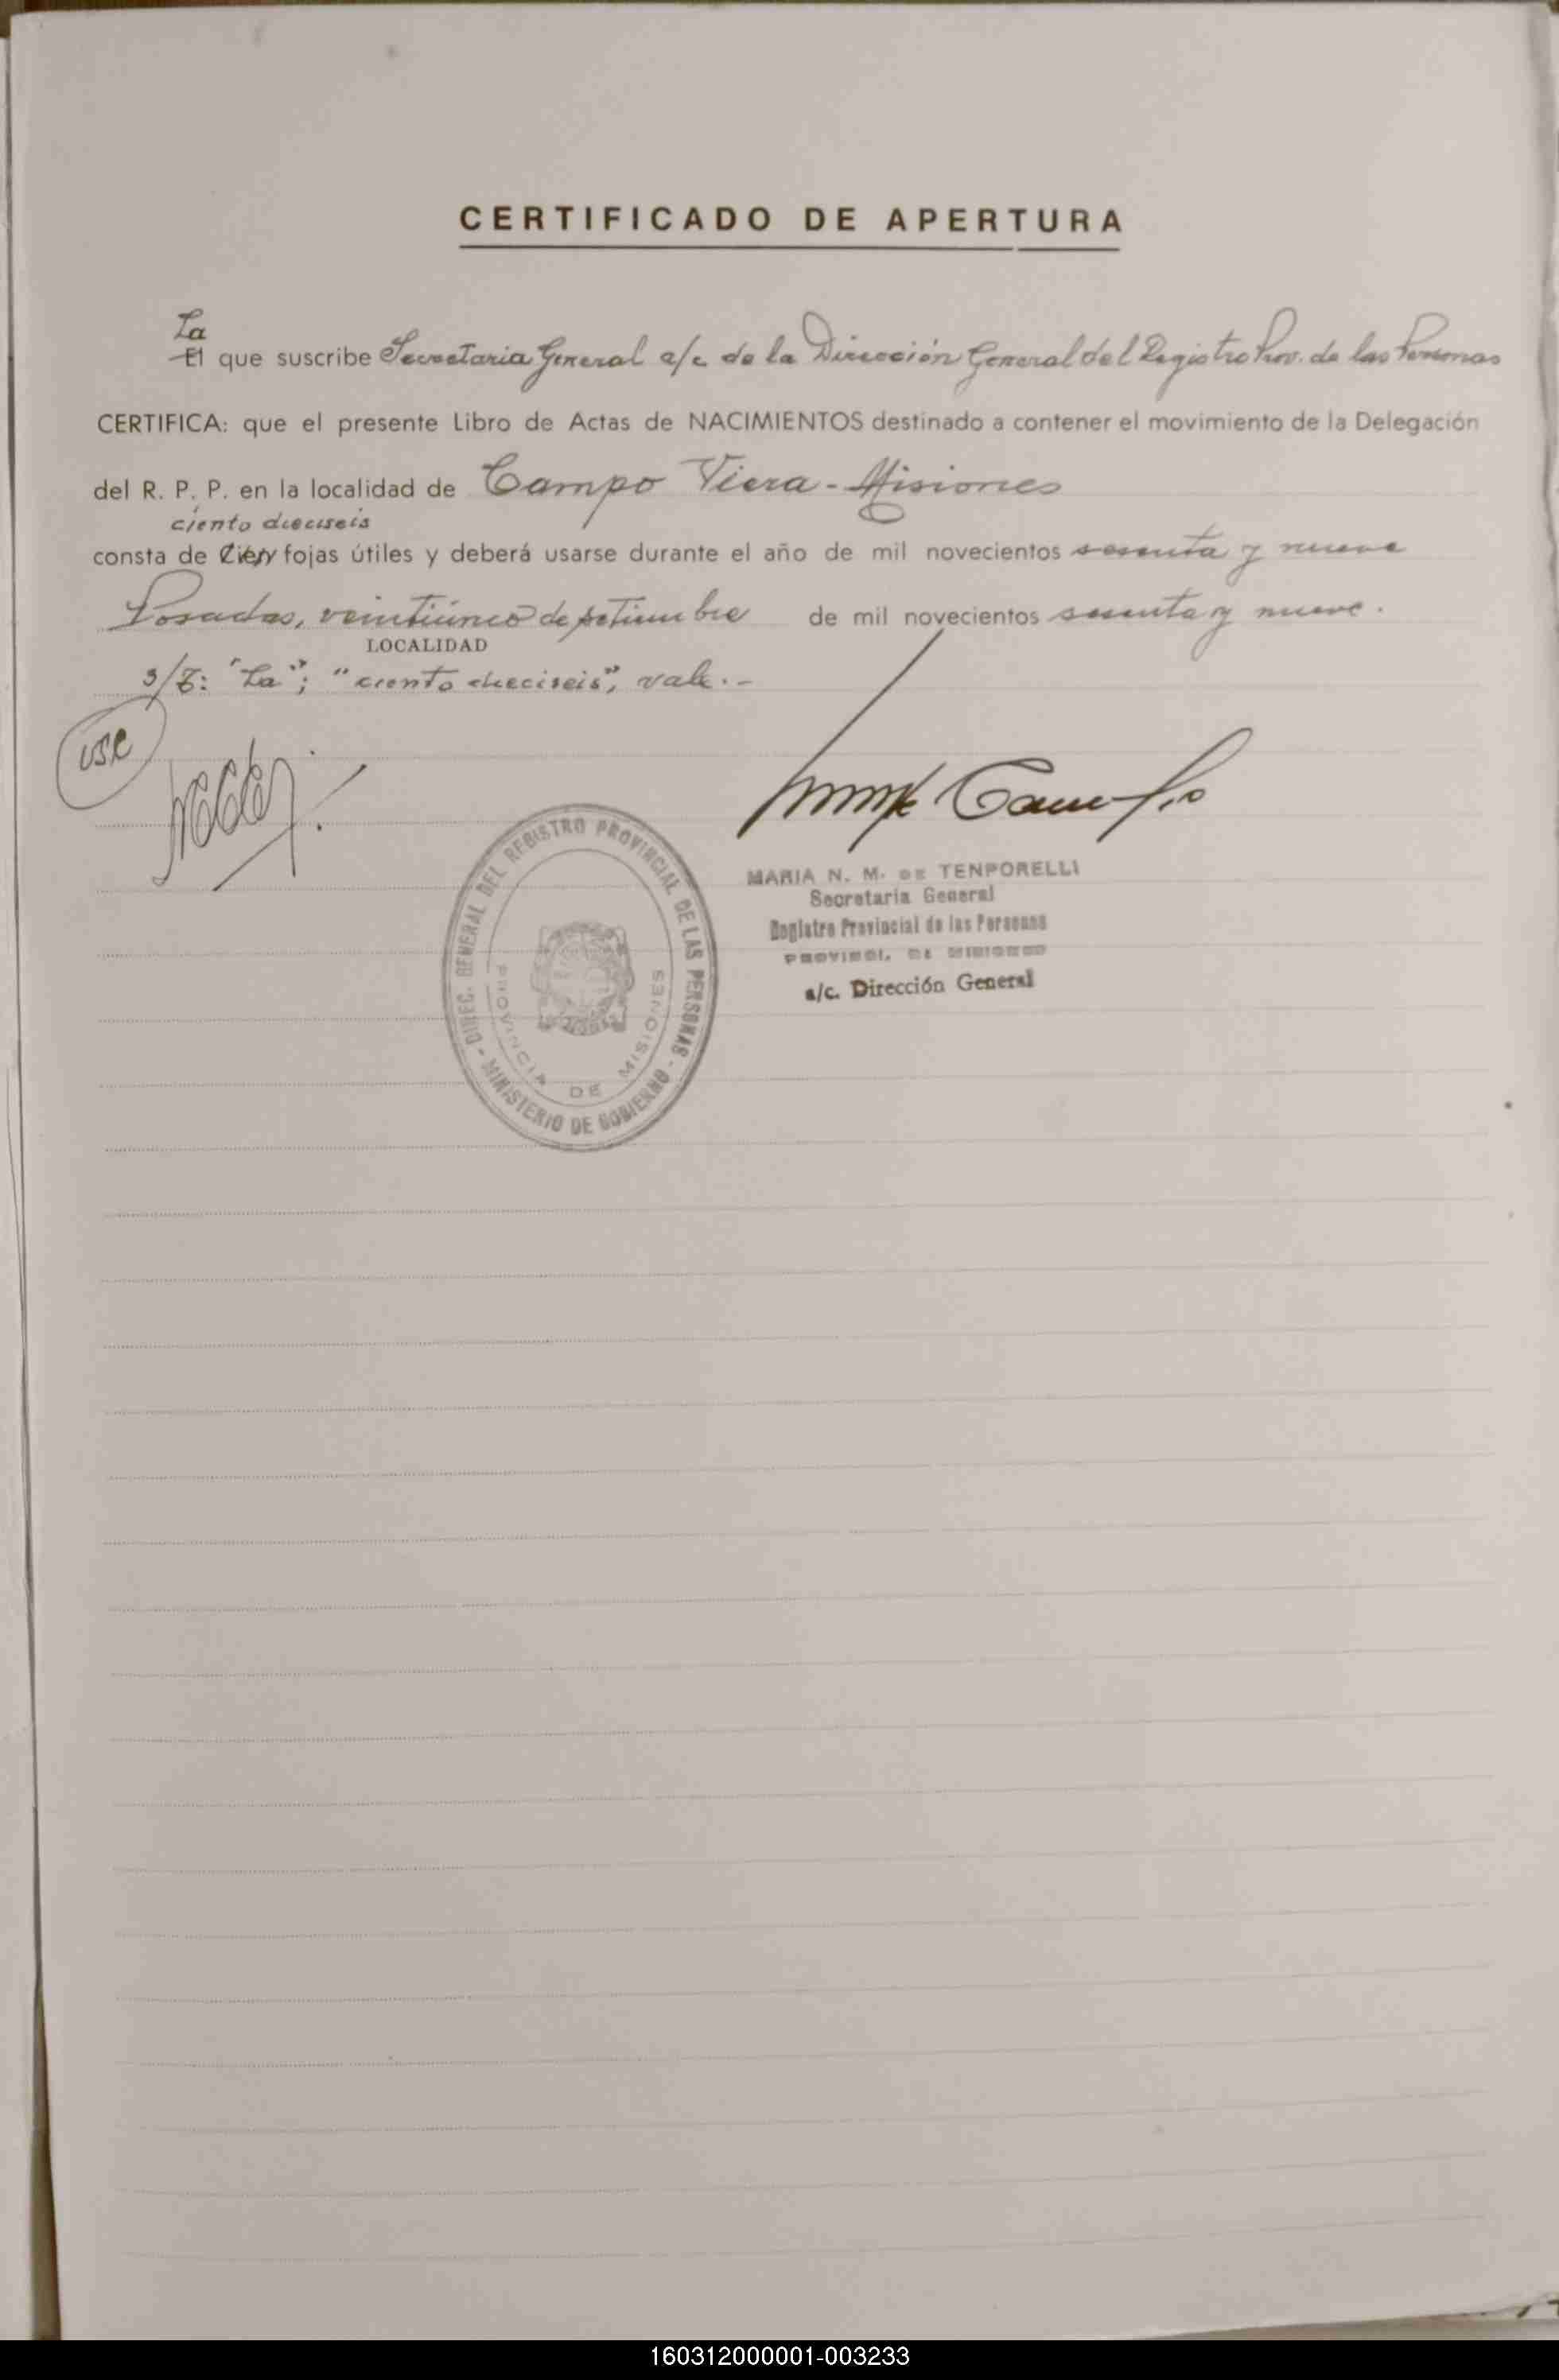 CERTIFICADO DE APERTURA
La
El que suscribe Secretaria General a/c de la Dirección General del Registro Prov. de las Personas
CERTIFICA: que el presente Libro de Actas de NACIMIENTOS destinado a contener el movimiento de la Delegación
del R. P. P. en la localidad de Campo Viera - Misiones
ciento dieciseis
consta de Cien fojas útiles y deberá usarse durante el año de mil novecientos sesenta y nueve
Posadas, veinticinco de setiembre de mil novecientos sesenta y nueve.
LOCALIDAD
"La"; "ciento dieciseis", vale.-
USE
DIREC. GENERAL DEL REGISTRO PROVINCIAL DE LAS PERSONAS - MINISTERIO DE GOBIERNO -
PROVINCIA DE MISIONES
MARIA N. M. DE TENPORELLI
Secretaria General
Registro Provincial de las Personas
PROVINCI. DE MISIONES
a/c. Dirección General
160312000001-003233